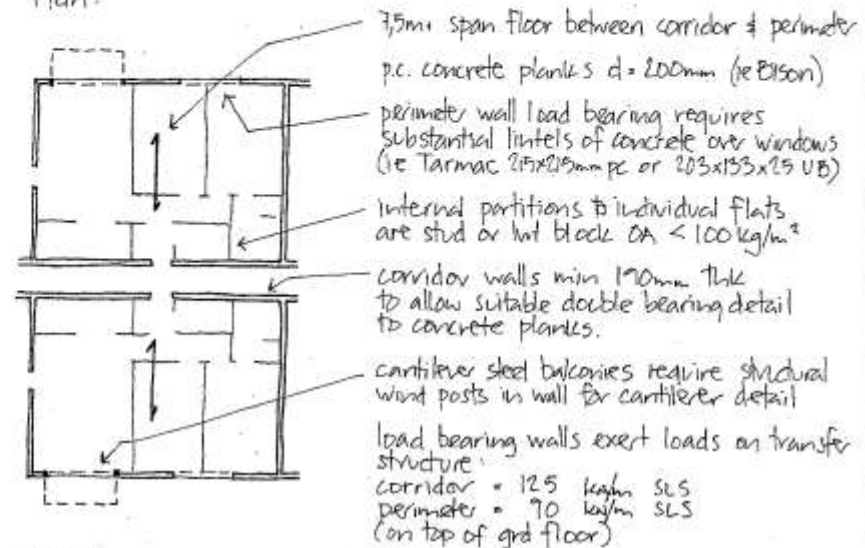 Plan:
7,5m+ span floor between corridor & perimeter
p.c. concrete planks d= 200mm (ie Bison)
perimeter wall load bearing requires
substantial lintels of concrete over windows
(ie Tarmac 215x215mm pc or 203x133x25 UB)
internal partitions to individual flats
are stud or lwt block OA < 100 kg/m²
corridor walls min 190mm thk
to allow suitable double bearing detail
to concrete planks.
cantilever steel balconies require structural
wind posts in wall for cantilever detail
load bearing walls exert loads on transfer
structure:
corridor = 125 SLS
perimeter = 90 SLS
(on top of grd floor)